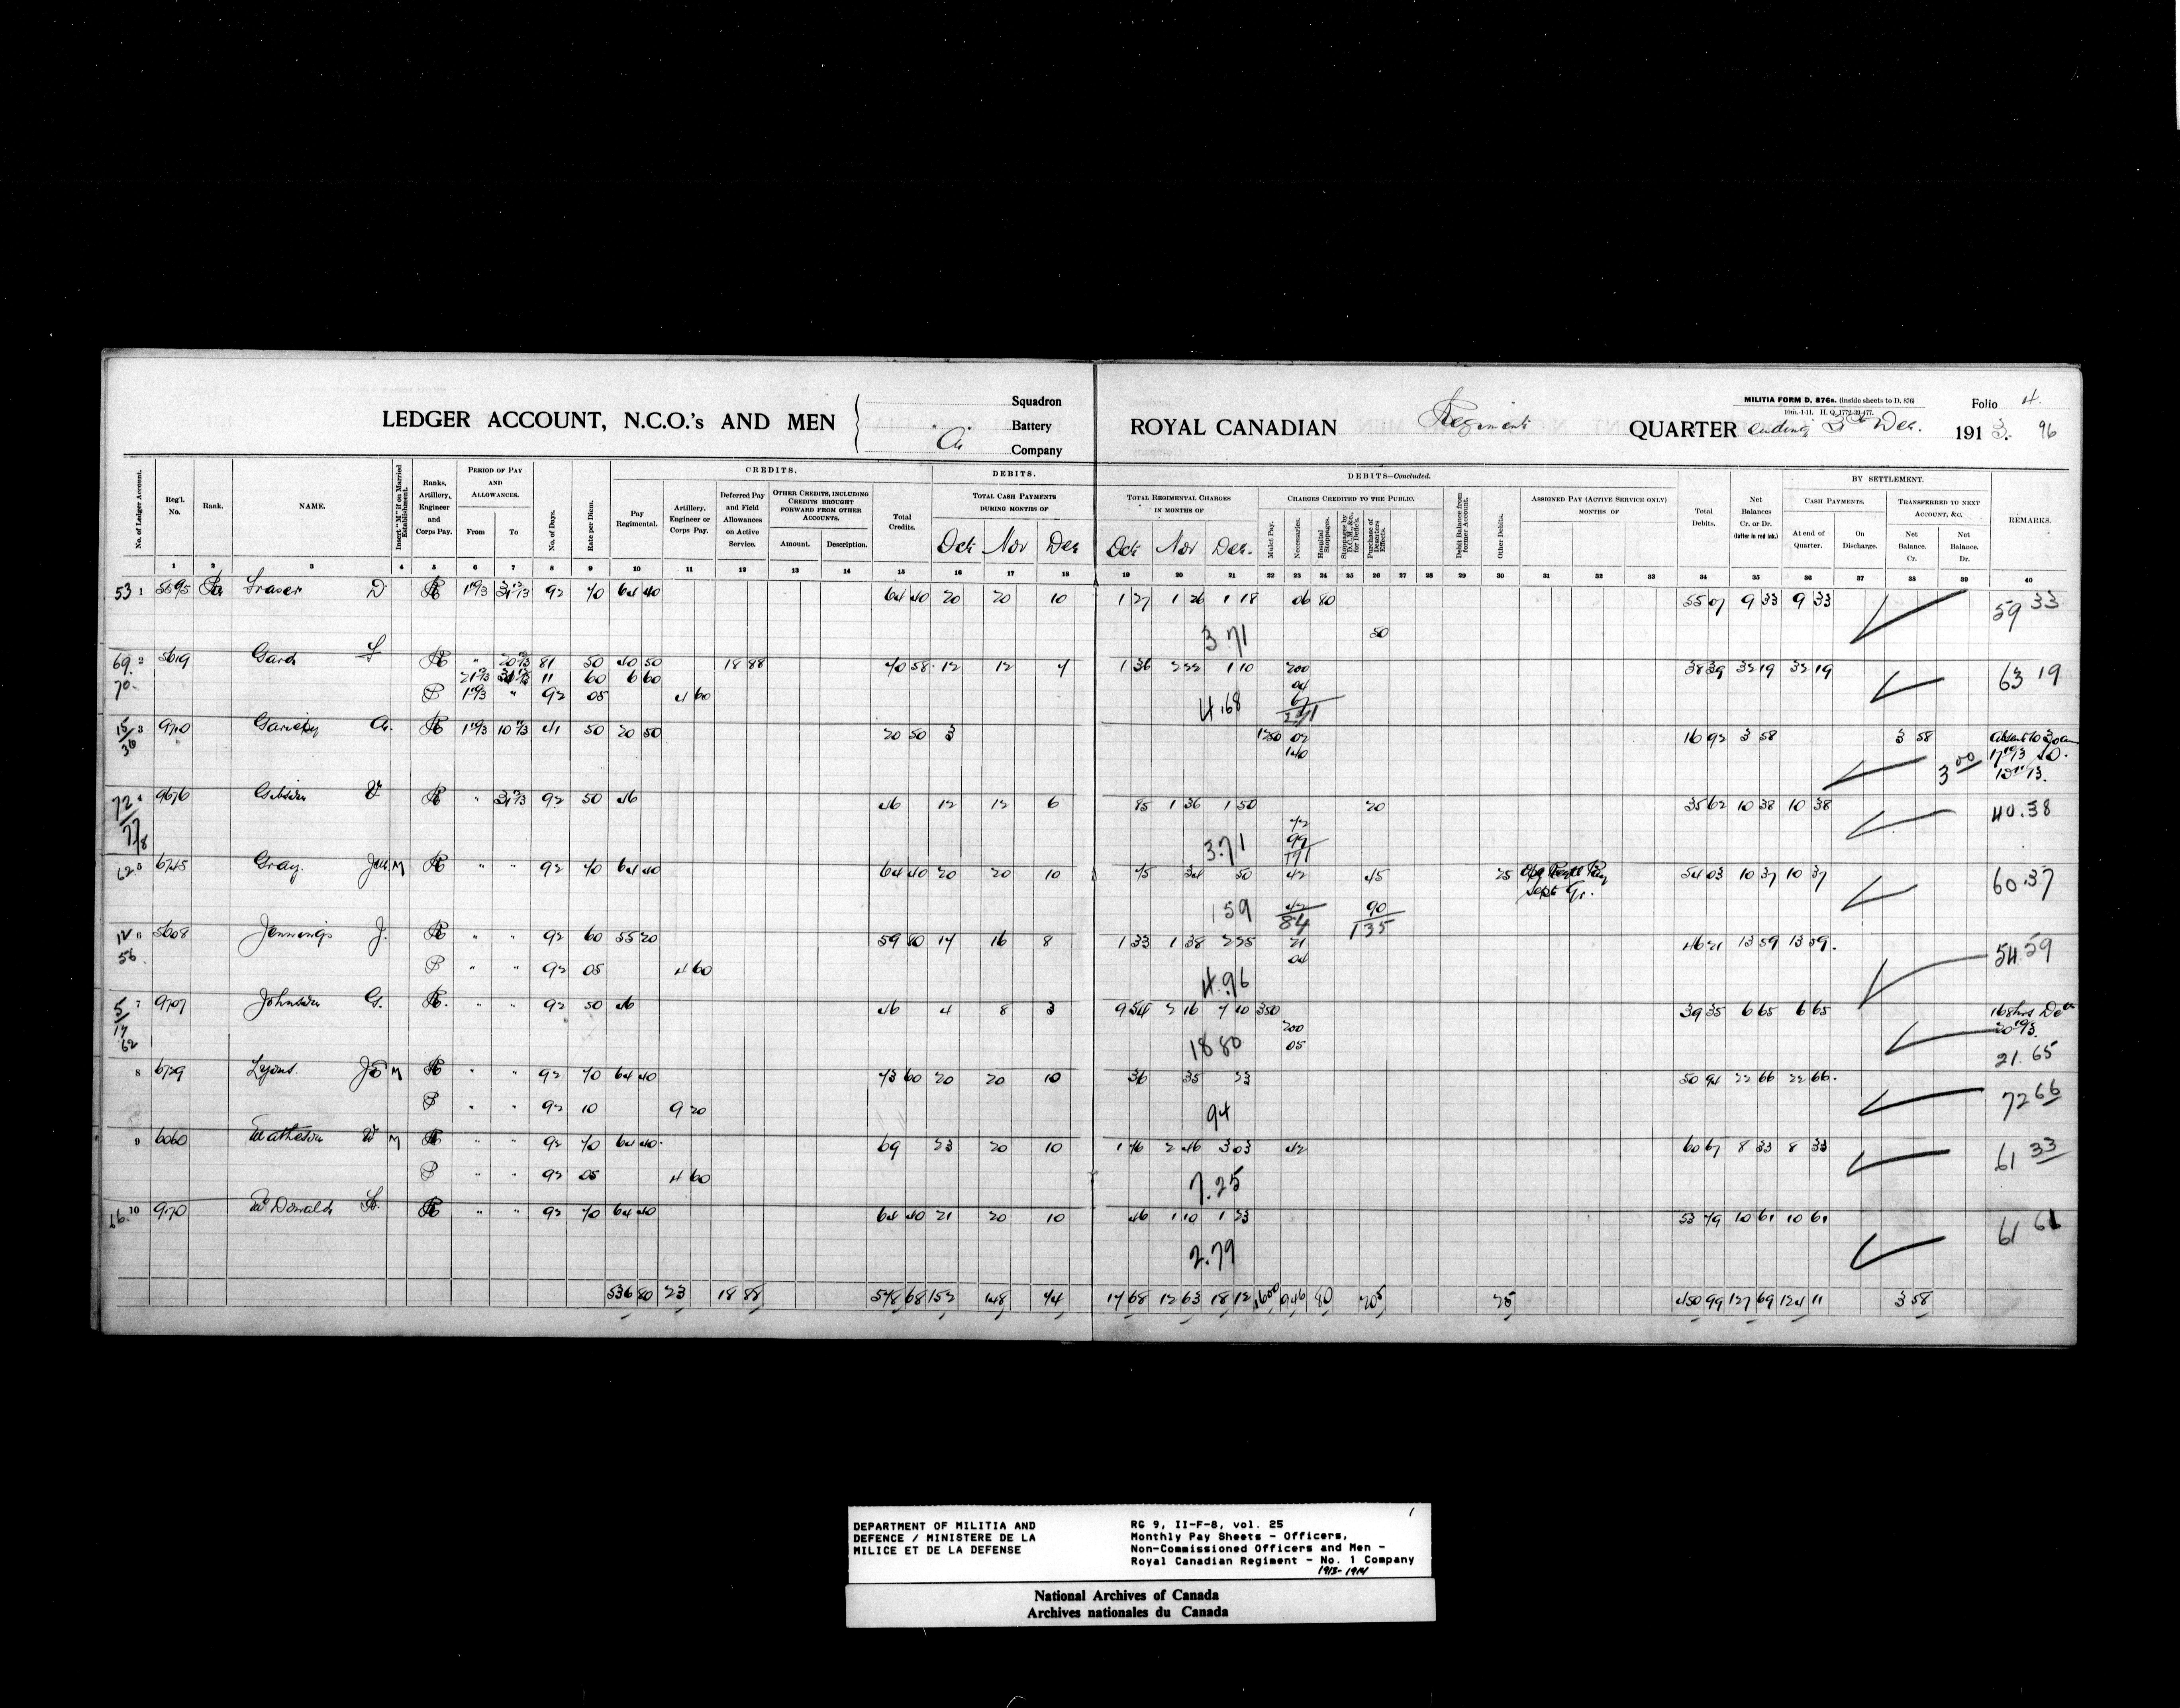 LEDGER ACCOUNT, N.C.O.'s AND MEN
Squadron
Battery
"A" Company
ROYAL CANADIAN Regiment
MILITIA FORM D. 876a. (inside sheets to D. 876)
10m.-1-11. H. Q. 1772-39-477.
QUARTER ending 31st Dec. 1913. 96
Folio 4.
No. of Ledger Account.
Reg'l. No.
Rank.
NAME.
Insert "M" if on Married Establishment.
Ranks. Artillery, Engineer and Corps Pay.
PERIOD OF PAY AND ALLOWANCES.
From To
No. of Days.
Rate per Diem.
CREDITS.
Pay Regimental.
Artillery, Engineer or Corps Pay.
Deferred Pay and Field Allowances on Active Service.
OTHER CREDITS, INCLUDING CREDITS BROUGHT FORWARD FROM OTHER ACCOUNTS.
Amount. Description.
Total Credits.
DEBITS.
TOTAL CASH PAYMENTS DURING MONTHS OF
Oct Nov Dec
DEBITS—Concluded.
TOTAL REGIMENTAL CHARGES IN MONTHS OF
Oct Nov Dec.
CHARGES CREDITED TO THE PUBLIC.
Mulct Pay.
Necessaries.
Hospital Stoppages.
Purchase of Deserters Effects.
Debit Balance from former Account.
Other Debits.
ASSIGNED PAY (ACTIVE SERVICE ONLY) MONTHS OF
Total Debits.
Net Balances Cr. or Dr. (latter in red ink.)
BY SETTLEMENT.
CASH PAYMENTS.
At end of Quarter.
On Discharge.
TRANSFERRED TO NEXT ACCOUNT, &c.
Net Balance. Cr.
Net Balance. Dr.
REMARKS.
1 2 3 4 5 6 7 8 9 10 11 12 13 14 15 16 17 18 19 20 21 22 23 24 25 26 27 28 29 30 31 32 33 34 35 36 37 38 39 40
53 1 5595 Fraser D R 92 70 64 40 64 40 20 20 10 1 27 1 26 1 18 06 80 55 07 9 33 9 33 59 33
3.71 50
69 2 5619 Gard F R " 81 50 40 50 18 88 70 58 12 12 7 1 36 2 22 1 10 200 38 39 32 19 32 19 63 19
70 11 60 6 60 04
P " 92 05 4 60 4.68 67
271
15 3 9710 A. R 41 50 20 50 20 50 3 1250 02 16 92 3 58 3 58
36 140 3 00
72 4 9676 Gibson R " 92 50 46 46 12 12 6 85 1 36 1 50 20 35 62 10 38 10 38 40.38
77/8 3.71 99
62 5 6745 Gray. Jas. M R " " 92 70 64 40 64 40 20 20 10 75 34 50 42 45 25 54 03 10 37 10 37 60.37
1 59 42 90
84 135
12 6 5608 Jennings J. R " " 92 60 55 20 59 80 17 16 8 1 33 1 38 2 25 21 46 21 13 59 13 59. 54.59
56 P " " 92 05 4 60 04
4.96
5 7 9707 Johnston G. R. " " 92 50 46 46 4 8 3 9 54 2 16 7 10 350 39 35 6 65 6 65 168hrs Detn
17 200
62 18 80 05 21.65
8 6729 Lyons. M R " " 92 70 64 40 73 60 20 20 10 36 35 23 50 94 22 66 22 66. 72 66
P " " 92 10 9 20 94
9 6060 Matheson W M R " " 92 70 64 40 69 23 20 10 1 76 2 46 3 03 42 60 67 8 33 8 33 61 33
P " " 92 05 4 60 7.25
16. 10 9170 McDonald R " " 92 70 64 40 64 40 21 20 10 46 1 10 1 23 53 79 10 61 10 61 61 61
2.79
536 80 23 18 88 578 68 152 148 74 17 68 12 63 18 12 1600 946 80 205 25 450 99 127 69 124 11 3 58
DEPARTMENT OF MILITIA AND
DEFENCE / MINISTERE DE LA
MILICE ET DE LA DEFENSE
1
RG 9, II-F-8, vol. 25
Monthly Pay Sheets - Officers,
Non-Commissioned Officers and Men -
Royal Canadian Regiment - No. 1 Company
1913-1914
National Archives of Canada
Archives nationales du Canada